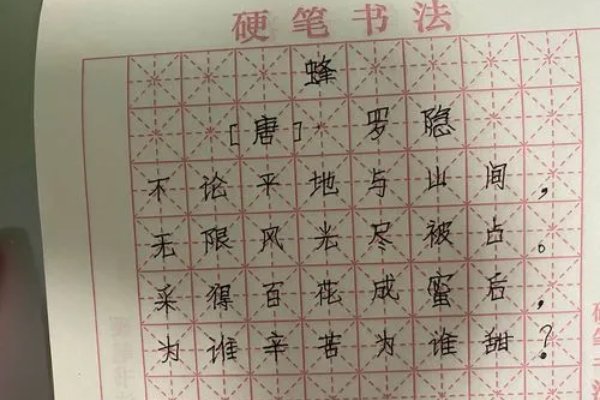 硬笔书法
蜂
[唐] 罗隐
不论平地与山间，
无限风光尽被占。
采得百花成蜜后，
为谁辛苦为谁甜？